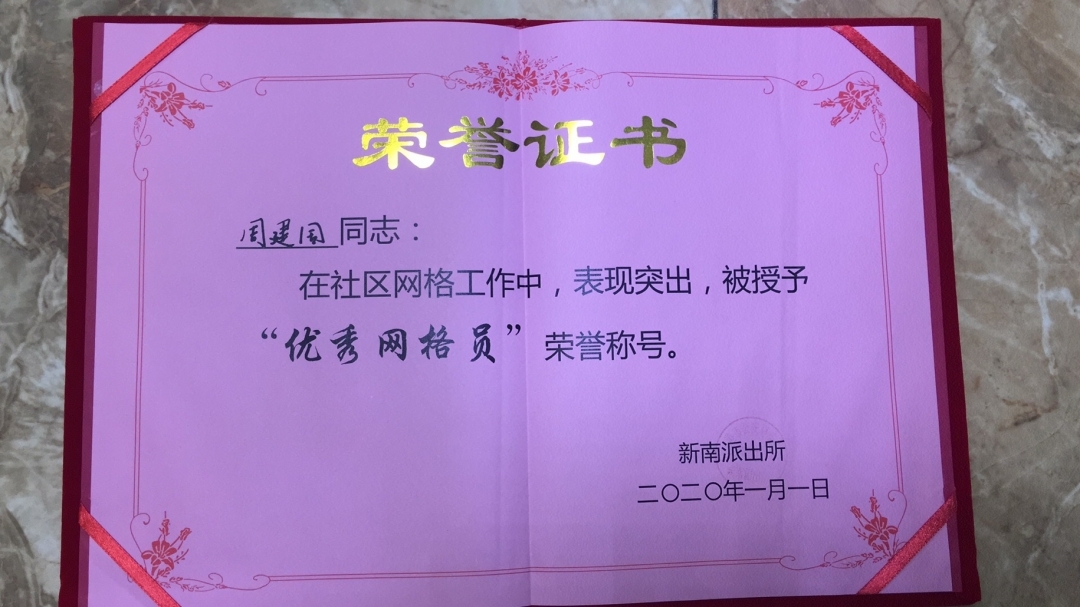 荣誉证书
周建国同志：
在社区网格工作中，表现突出，被授予
“优秀网格员”荣誉称号。
新南派出所
二〇二〇年一月一日